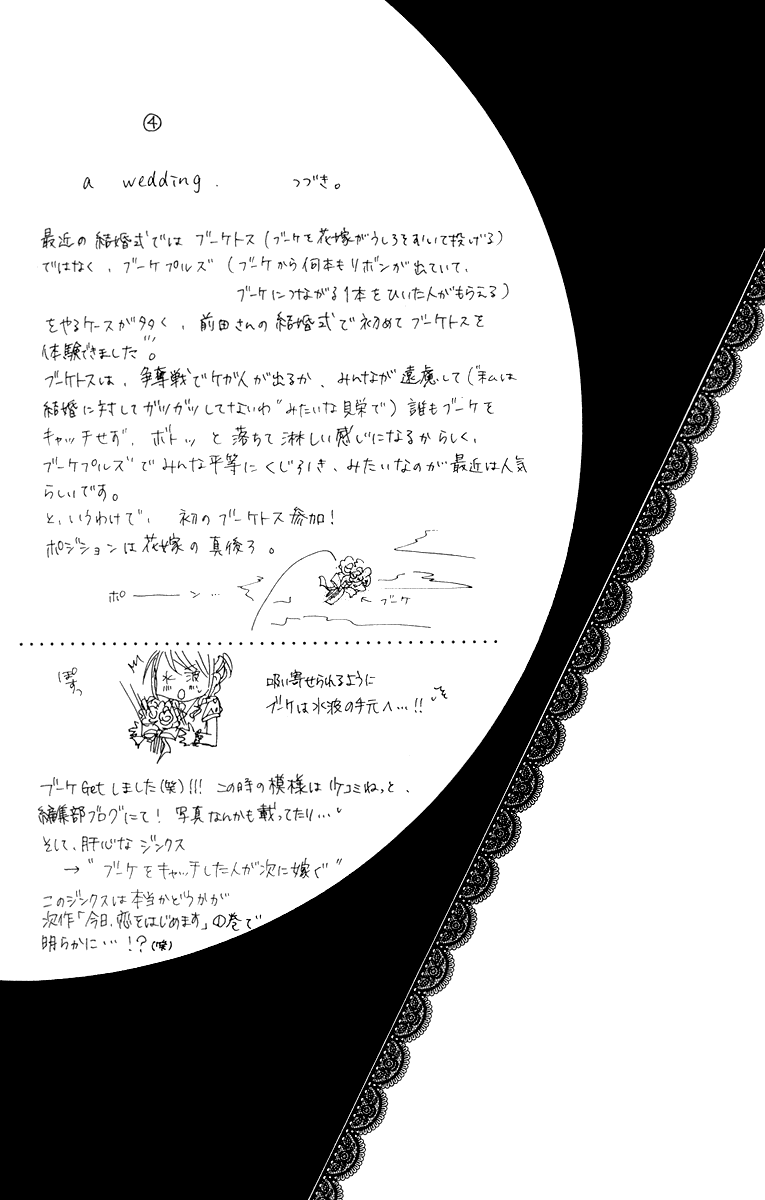 ④
a wedding. つづき。
最近の結婚式では ブーケトス(ブーケを花嫁がうしろをむいて投げる)
ではなく、ブーケプルズ(ブーケから何本もリボンが出ていて、
ブーケにつながる1本をひいた人がもらえる)
をやるケースが多く、前田さんの結婚式で初めてブーケトスを
体験できました。
ブーケトスは、争奪戦でケガ人が出るか、みんなが遠慮して("私は
結婚に対してガツガツしてないわ"みたいな見栄で)誰もブーケを
キャッチせず、ボトッと落ちて淋しい感じになるからしく、
ブーケプルズでみんな平等にくじ引き、みたいなのが最近は人気
らしいです。
と、いうわけで、初のブーケトス参加!
ポジションは花嫁の真後ろ。
ポーーン…
← ブーケ
ぽすっ
水波
吸い寄せられるように
ブーケは水波の手元へ…!!
ブーケGetしました(笑)!!! この時の模様はバケコミねっと、
編集部ブログにて! 写真なんかも載ってたり…
そして、肝心なジンクス
→"ブーケをキャッチした人が次に嫁ぐ"
このジンクスは本当かどうかが
次作「今日、恋をはじめます」の巻で
明らかに…!?(笑)